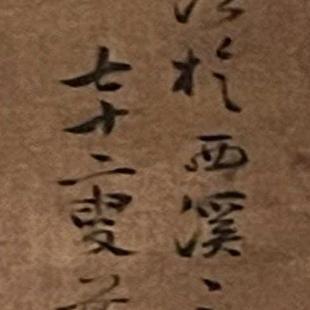 於西溪之
七十二叟